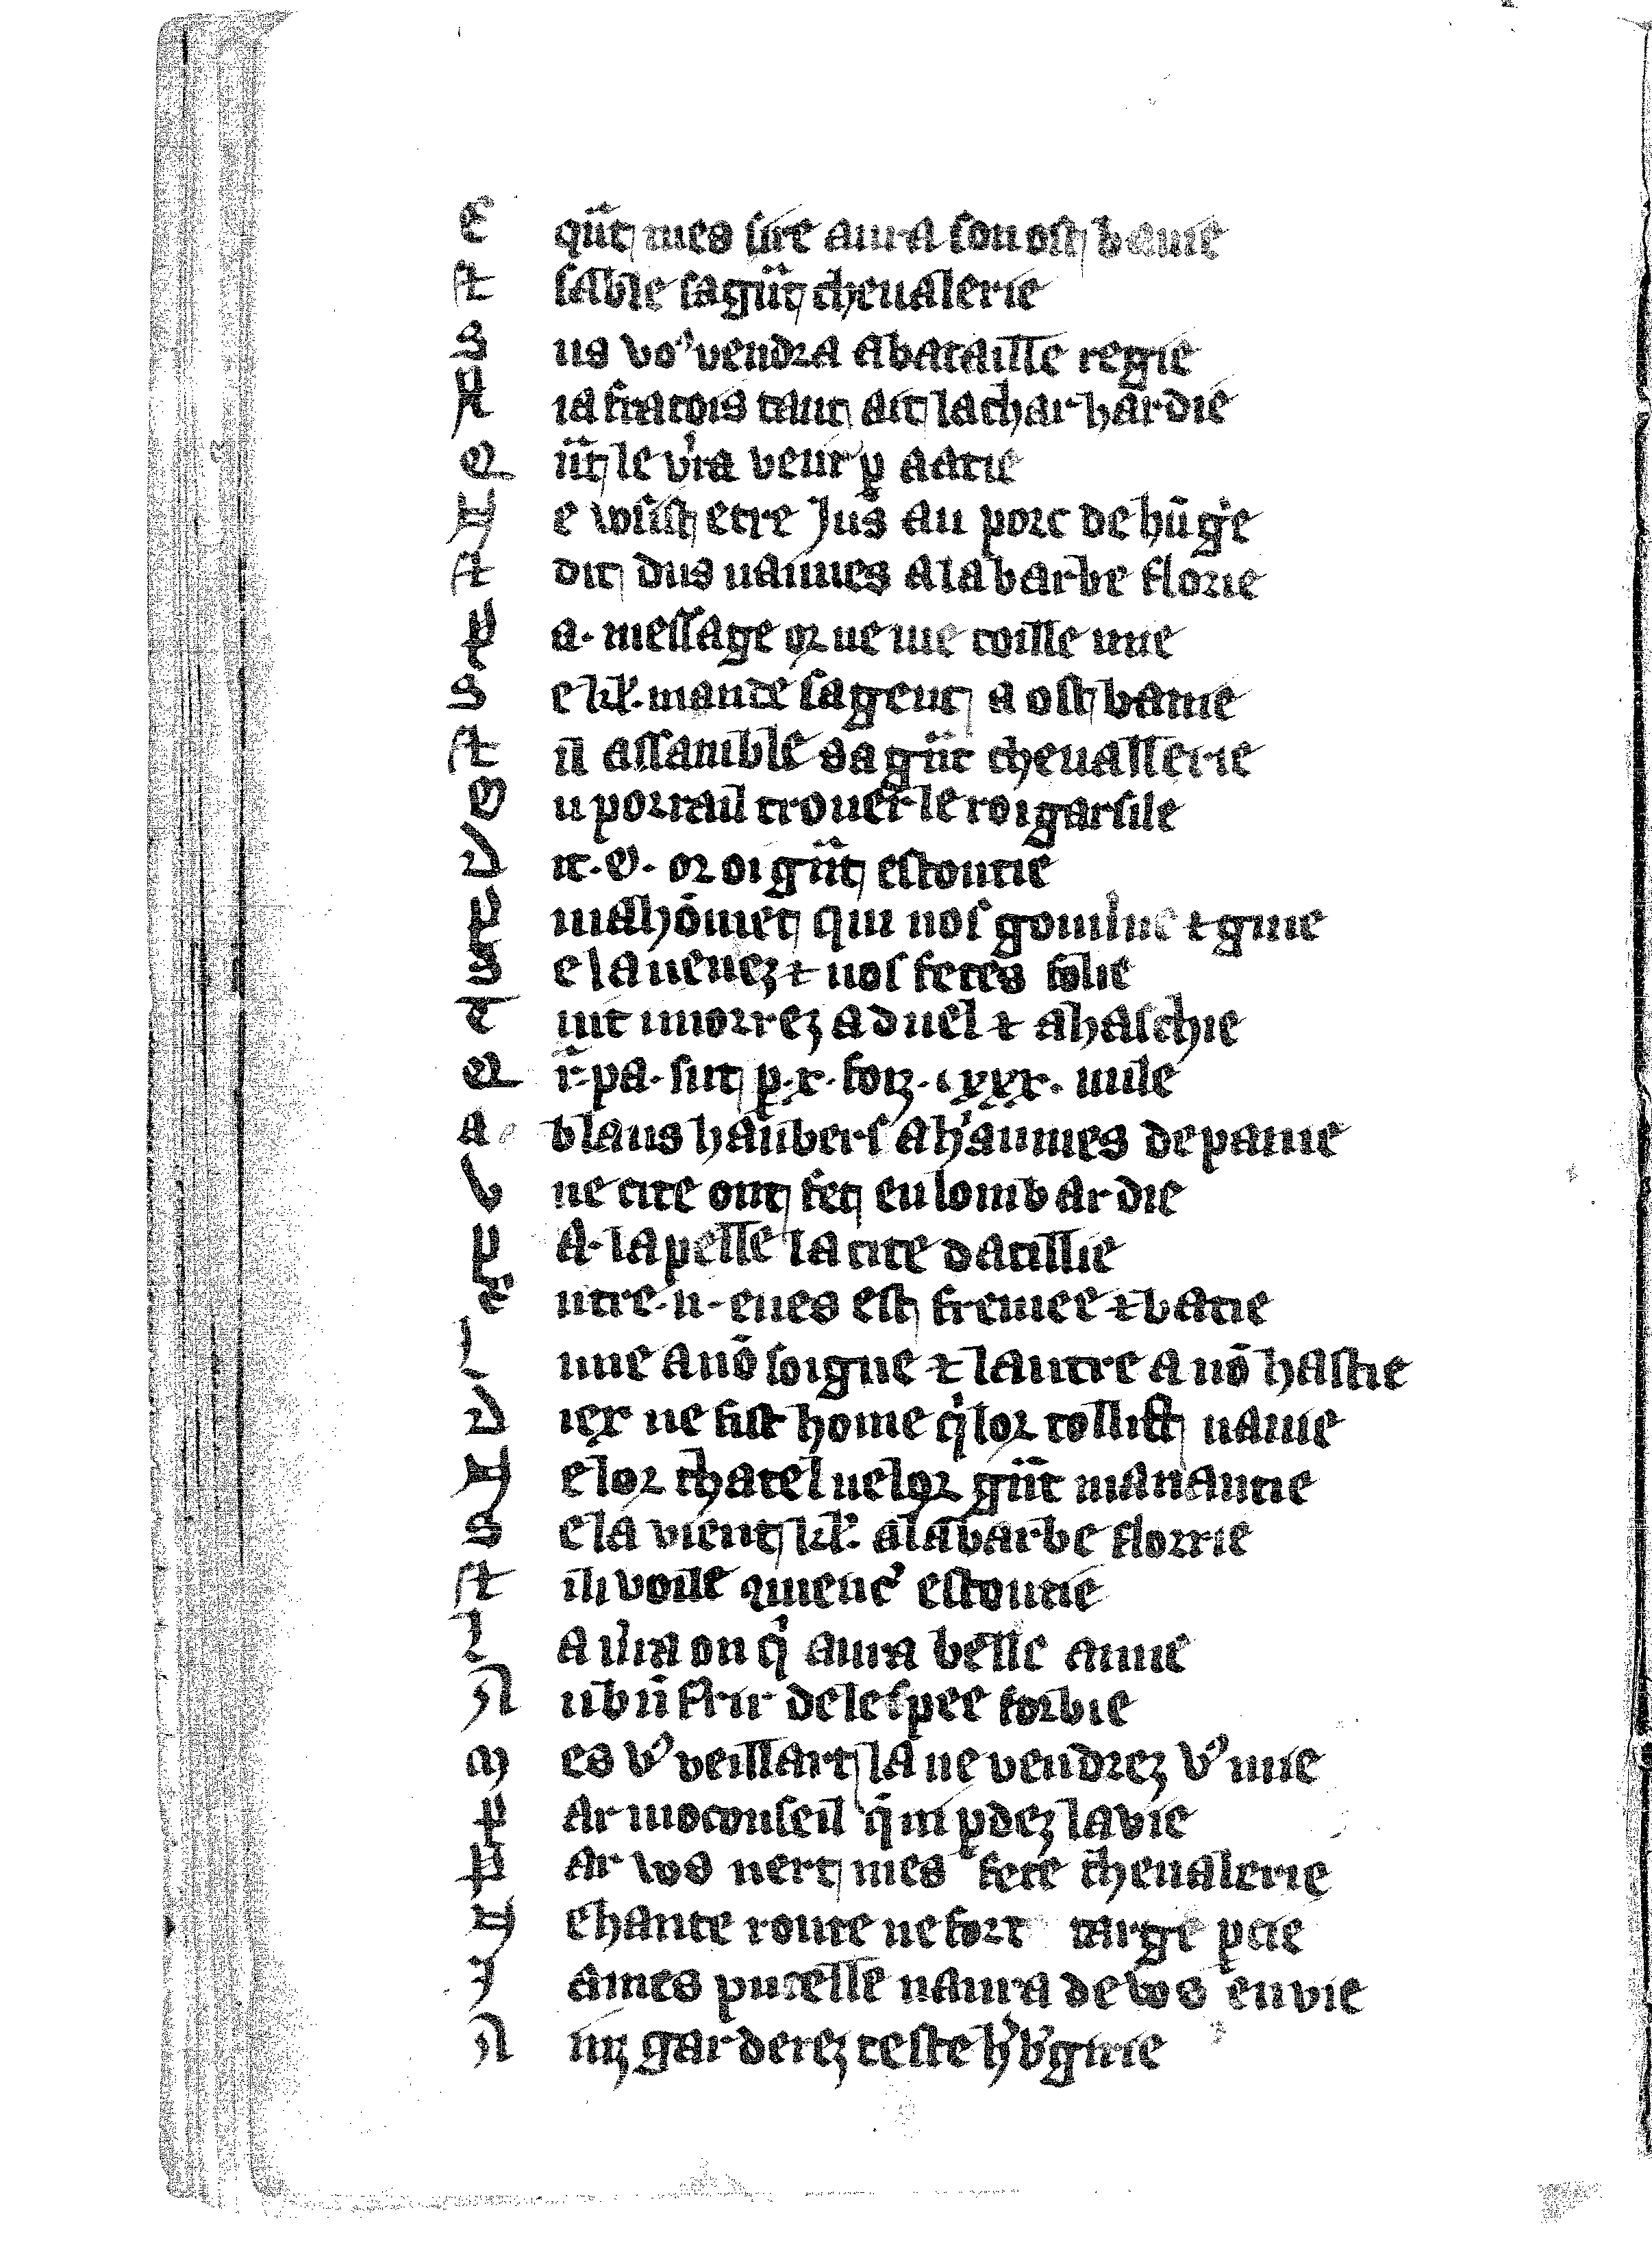 E qñt mes sire aura son ost banie
A sable sa gñt cheualerie
S us vo⁹ vendra a bataille regie
N ia francois tant ait la char hardie
Q ñt le vra venir ꝑ aatie
N e vosist etre jus au port de hũgie
A dit dus naimes a la barbe florie
P a. message or ne me coille mie
S e kľ. mande sa gent a ost banie
A il assamble sa gñt cheuallerie
O u porrai trouer le roi garsile
D it .O. or oi gñt estoutie
P mahōmet qui nos gouuerne ⁊ guie
S e la uenez ⁊ nos fetes folie
T uit i morrez a duel ⁊ a haschie
Q r pa. sunt ꝑ .x. foiz .cxxx. mile
A blans haubers a haumes de pauie
V ne cite ont fet en lombardie
P A. lapelle la cite datillie
E ntre .ii. eues est fremee ⁊ batie
L une a nō soigne ⁊ lautre a nō hastie
D iex ne fist home qͥ lor tollist nauie
N e lor chatel ne lor gñt manantie
S e la vient kľ. a la barbe florrie
A ili voille qmenc̾ estoutie
L a vͬra on qͥ aura belle amie
N i bñ ferir de lespee forbie
M es v⁹ veillart la ne vendrez v⁹ mie
P ar mō conseil qͥ ni ꝑdez la vie
P ar vos nert mes fete cheualerie
N e hante route ne fort targe ꝑcie
J ames pucelle naura de vos enuie
N iꝫ garderez teste hͬbͬgirie